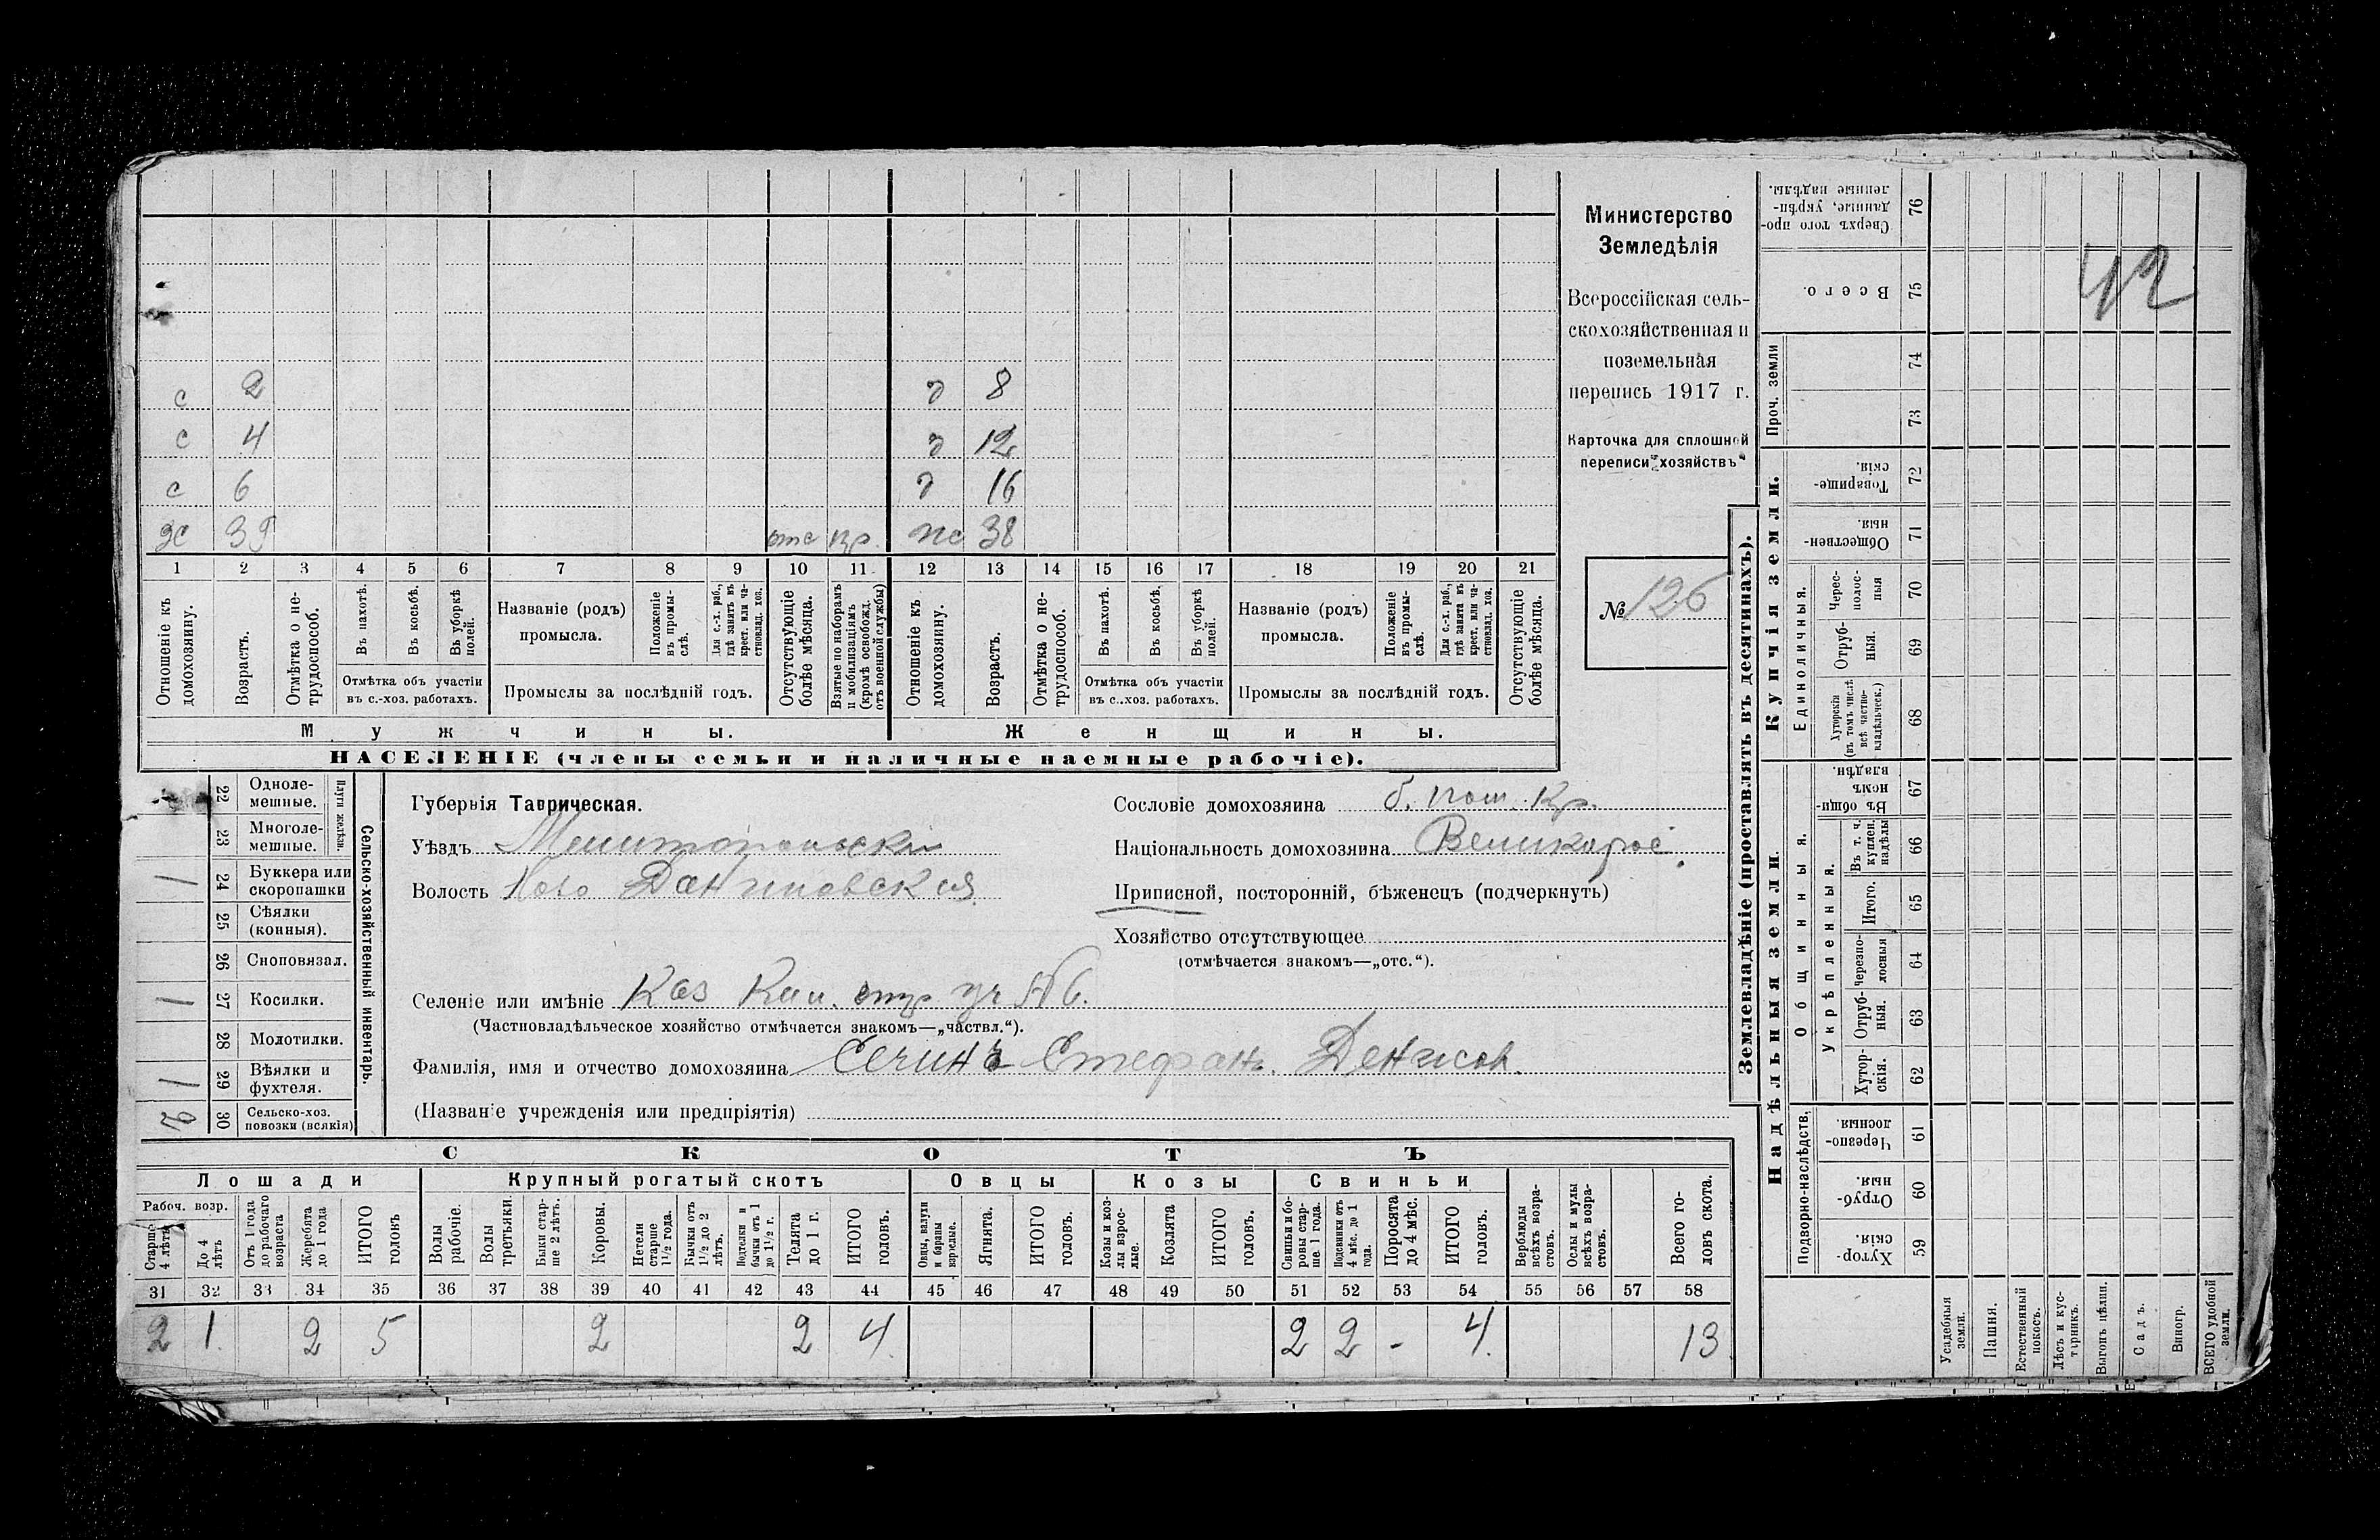 Министерство
Земледѣлія
Всероссійская сель-
скохозяйственная и
поземельная
перепись 1917 г.
Карточка для сплошной
переписи хозяйствъ
№ 126
42
с 2 д 8
с 4 д 12
с 6 д 16
отс жс 38
1 2 3 4 5 6 7 8 9 10 11 12 13 14 15 16 17 18 19 20 21
Отношеніе къ домохозяину.
Возрастъ.
Отмѣтка о не-трудоспособ.
Въ пахотѣ.
Въ косьбѣ.
Въ уборкѣ полей.
Отмѣтка объ участіи
въ с.-хоз. работахъ.
Названіе (родъ)
промысла.
Положеніе въ промы-слѣ.
Для с.-х. раб., гдѣ занятъ въ крест. или ча-стновлад. хоз.
Промыслы за послѣдній годъ.
Отсутствующіе болѣе мѣсяца.
Взятые по наборамъ и мобилизаціямъ (кромѣ освобожд. отъ военной службы)
Отношеніе къ домохозяину.
Возрастъ.
Отмѣтка о не-трудоспособ.
Въ пахотѣ.
Въ косьбѣ.
Въ уборкѣ полей.
Отмѣтка объ участіи
въ с..хоз. работахъ.
Названіе (родъ)
промысла.
Положеніе въ промы-слѣ.
Для с.-х. раб., гдѣ занята въ крест. или ча-стновлад. хоз.
Промыслы за послѣдній годъ.
Отсутствующіе болѣе мѣсяца.
Мужчины.
Женщины.
НАСЕЛЕНІЕ (члены семьи и наличные наемные рабочіе).
Сельско-хозяйственный инвентарь.
Плуги желѣзн.
22 Одноле-мешные.
23 Многоле-мешные.
1 24 Буккера или скоропашки
25 Сѣялки (конныя).
26 Сноповязал.
1 27 Косилки.
28 Молотилки.
1 29 Вѣялки и фухтеля.
2 30 Сельско-хоз. повозки (всякія)
Губернія Таврическая.
Уѣздъ Мелитопольскій
Волость Ново Даниловская
Сословіе домохозяина б. пом. Кр.
Національность домохозяина Великорос.
Приписной, посторонній, бѣженецъ (подчеркнуть)
Хозяйство отсутствующее
(отмѣчается знакомъ—„отс.“).
Селеніе или имѣніе Каз уч № 6.
(Частновладѣльческое хозяйство отмѣчается знакомъ—„частвл.“).
Фамилія, имя и отчество домохозяина Сечинъ Стефанъ Денисов.
(Названіе учрежденія или предпріятія)
СКОТЪ
Лошади
Рабоч. возр.
Старше 4 лѣтъ
До 4 лѣтъ
Отъ 1 года до рабочаго возраста
Жеребята до 1 года
ИТОГО головъ
Крупный рогатый скотъ
Волы рабочіе.
Волы третьяки.
Быки стар-ше 2 лѣтъ.
Коровы.
Нетели старше 1½ года.
Бычки отъ 1½ до 2 лѣтъ.
Подтелки и бычки отъ 1 до 1½ г.
Телята до 1 г.
ИТОГО головъ.
Овцы
Овцы, валухи и бараны взрослые.
Ягнята.
ИТОГО головъ.
Козы
Козы и коз-лы взрос-лые.
Козлята
ИТОГО головъ.
Свиньи
Свиньи и бо-ровы стар-ше 1 года.
Подсвинки отъ 4 мѣс. до 1 года.
Поросята до 4 мѣс.
ИТОГО головъ.
Верблюды всѣхъ возра-стовъ.
Ослы и мулы всѣхъ возра-стовъ.
Всего го-ловъ скота.
31 32 33 34 35 36 37 38 39 40 41 42 43 44 45 46 47 48 49 50 51 52 53 54 55 56 57 58
2 1 2 5 2 2 4 2 2 - 4 13
Землевладѣніе (проставлять въ десятинахъ).
Купчія земли.
Надѣльныя земли
Сверхъ того про-данные, укрѣп-ленные надѣлы. 76
Всего. 75
Проч. земли
74
73
Товарище-скія. 72
Обществен-ныя. 71
Единоличныя.
Черес-полос-ныя 70
Отруб-ныя. 69
Хуторскія (въ томъ числѣ всѣ частно-владѣльческ.) 68
Общинныя.
Въ общи-номъ владѣн. 67
Укрѣпленныя.
Въ т. ч. куплен. надѣлы 66
Итого. 65
Черезпо-лосныя 64
Отруб-ныя. 63
Хутор-скія. 62
Подворно-наслѣдств.
Черезпо-лосныя 61
Отруб-ныя. 60
Хутор-скія. 59
Усадебныя земли.
Пашня.
Естественный покосъ.
Лѣсъ и кус-тарникъ.
Выгонъ цѣлин.
Садъ.
Виногр.
ВСЕГО удобной земли.